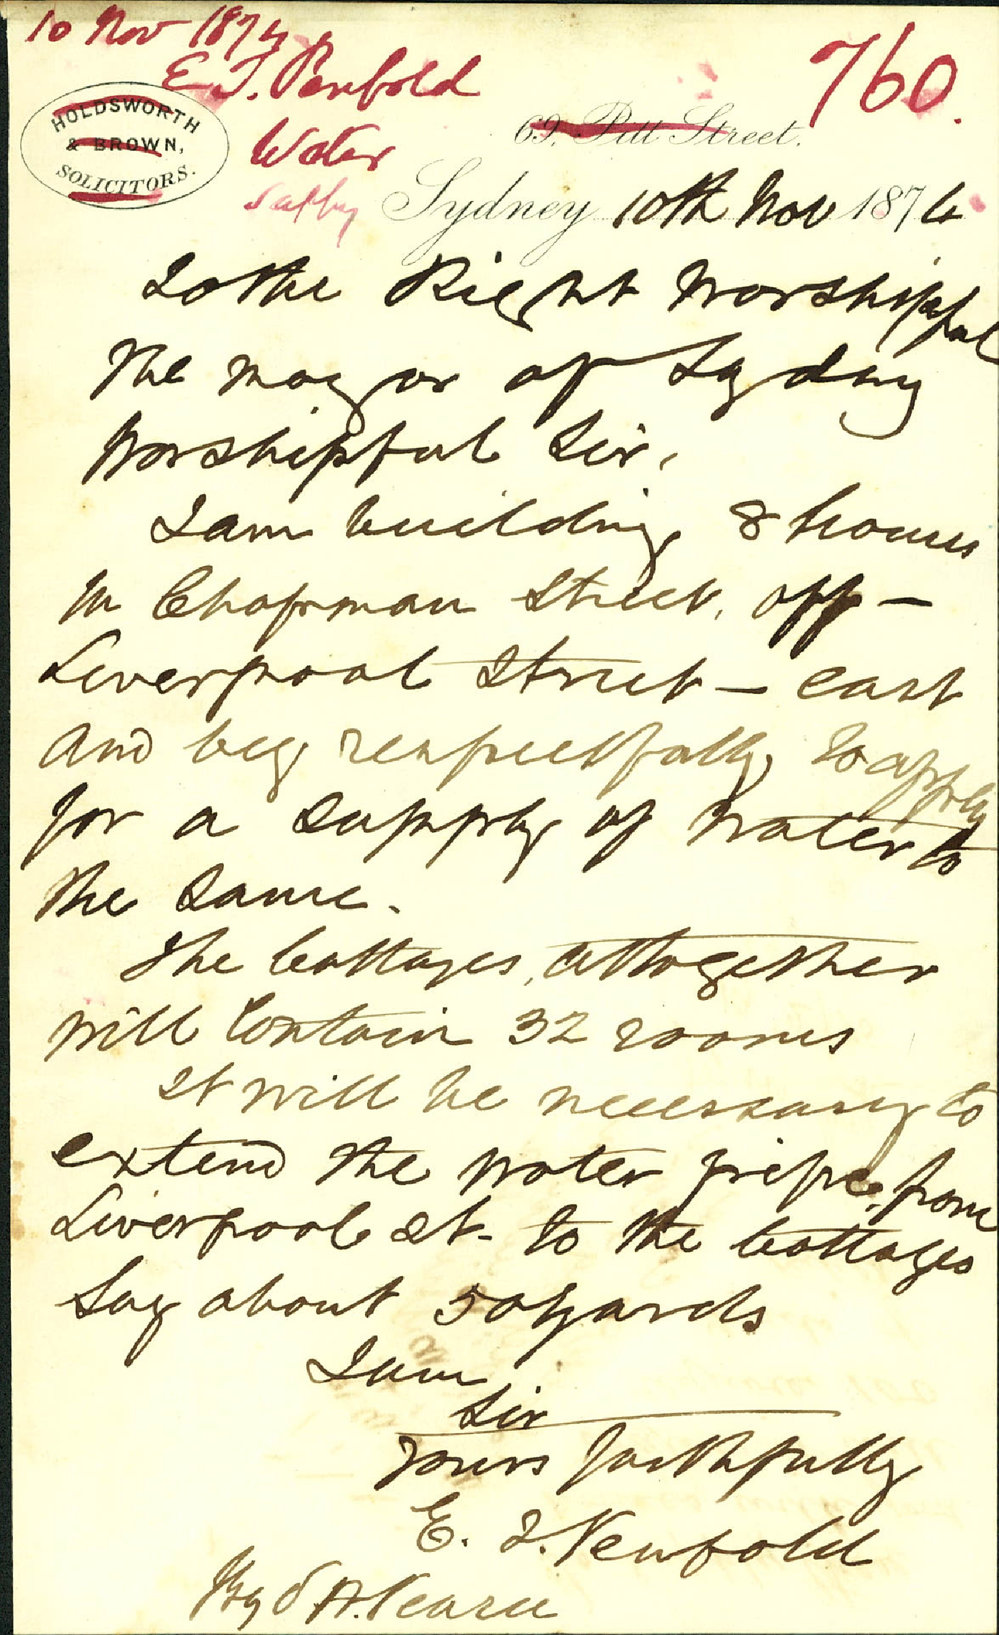 10 Nov 1874
E. T. Penfold
Water
Supply
760.
HOLDSWORTH
& BROWN,
SOLICITORS.
69. Pitt Street.
Sydney 10th Nov 1874
To the Right Worshipful
The Mayor of Sydney
Worshipful Sir,
I am building 8 houses
in Chapman Street, off –
Liverpool Street – east
and beg respectfully to apply
for a supply of Water to
the same.
The Cottages, altogether
will Contain 32 rooms
It will be necessary to
extend the water pipe from
Liverpool St. to the Cottages
Say about 50 yards
I am
Sir
yours faithfully
E. T. Penfold
By